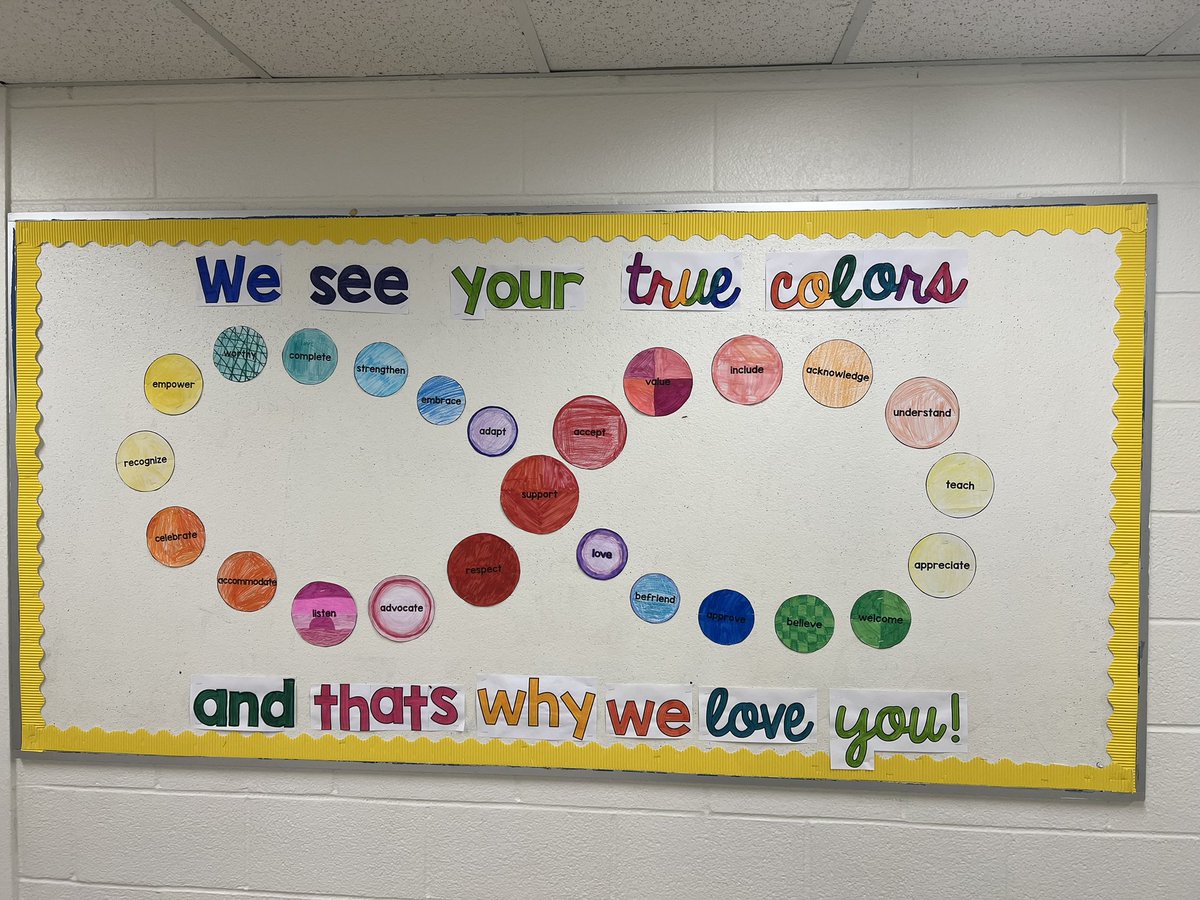 We see your true colors
worthy
complete
strengthen
embrace
adapt
empower
recognize
celebrate
accommodate
listen
advocate
respect
support
accept
value
include
acknowledge
understand
teach
appreciate
welcome
believe
approve
befriend
love
and that's why we love you!